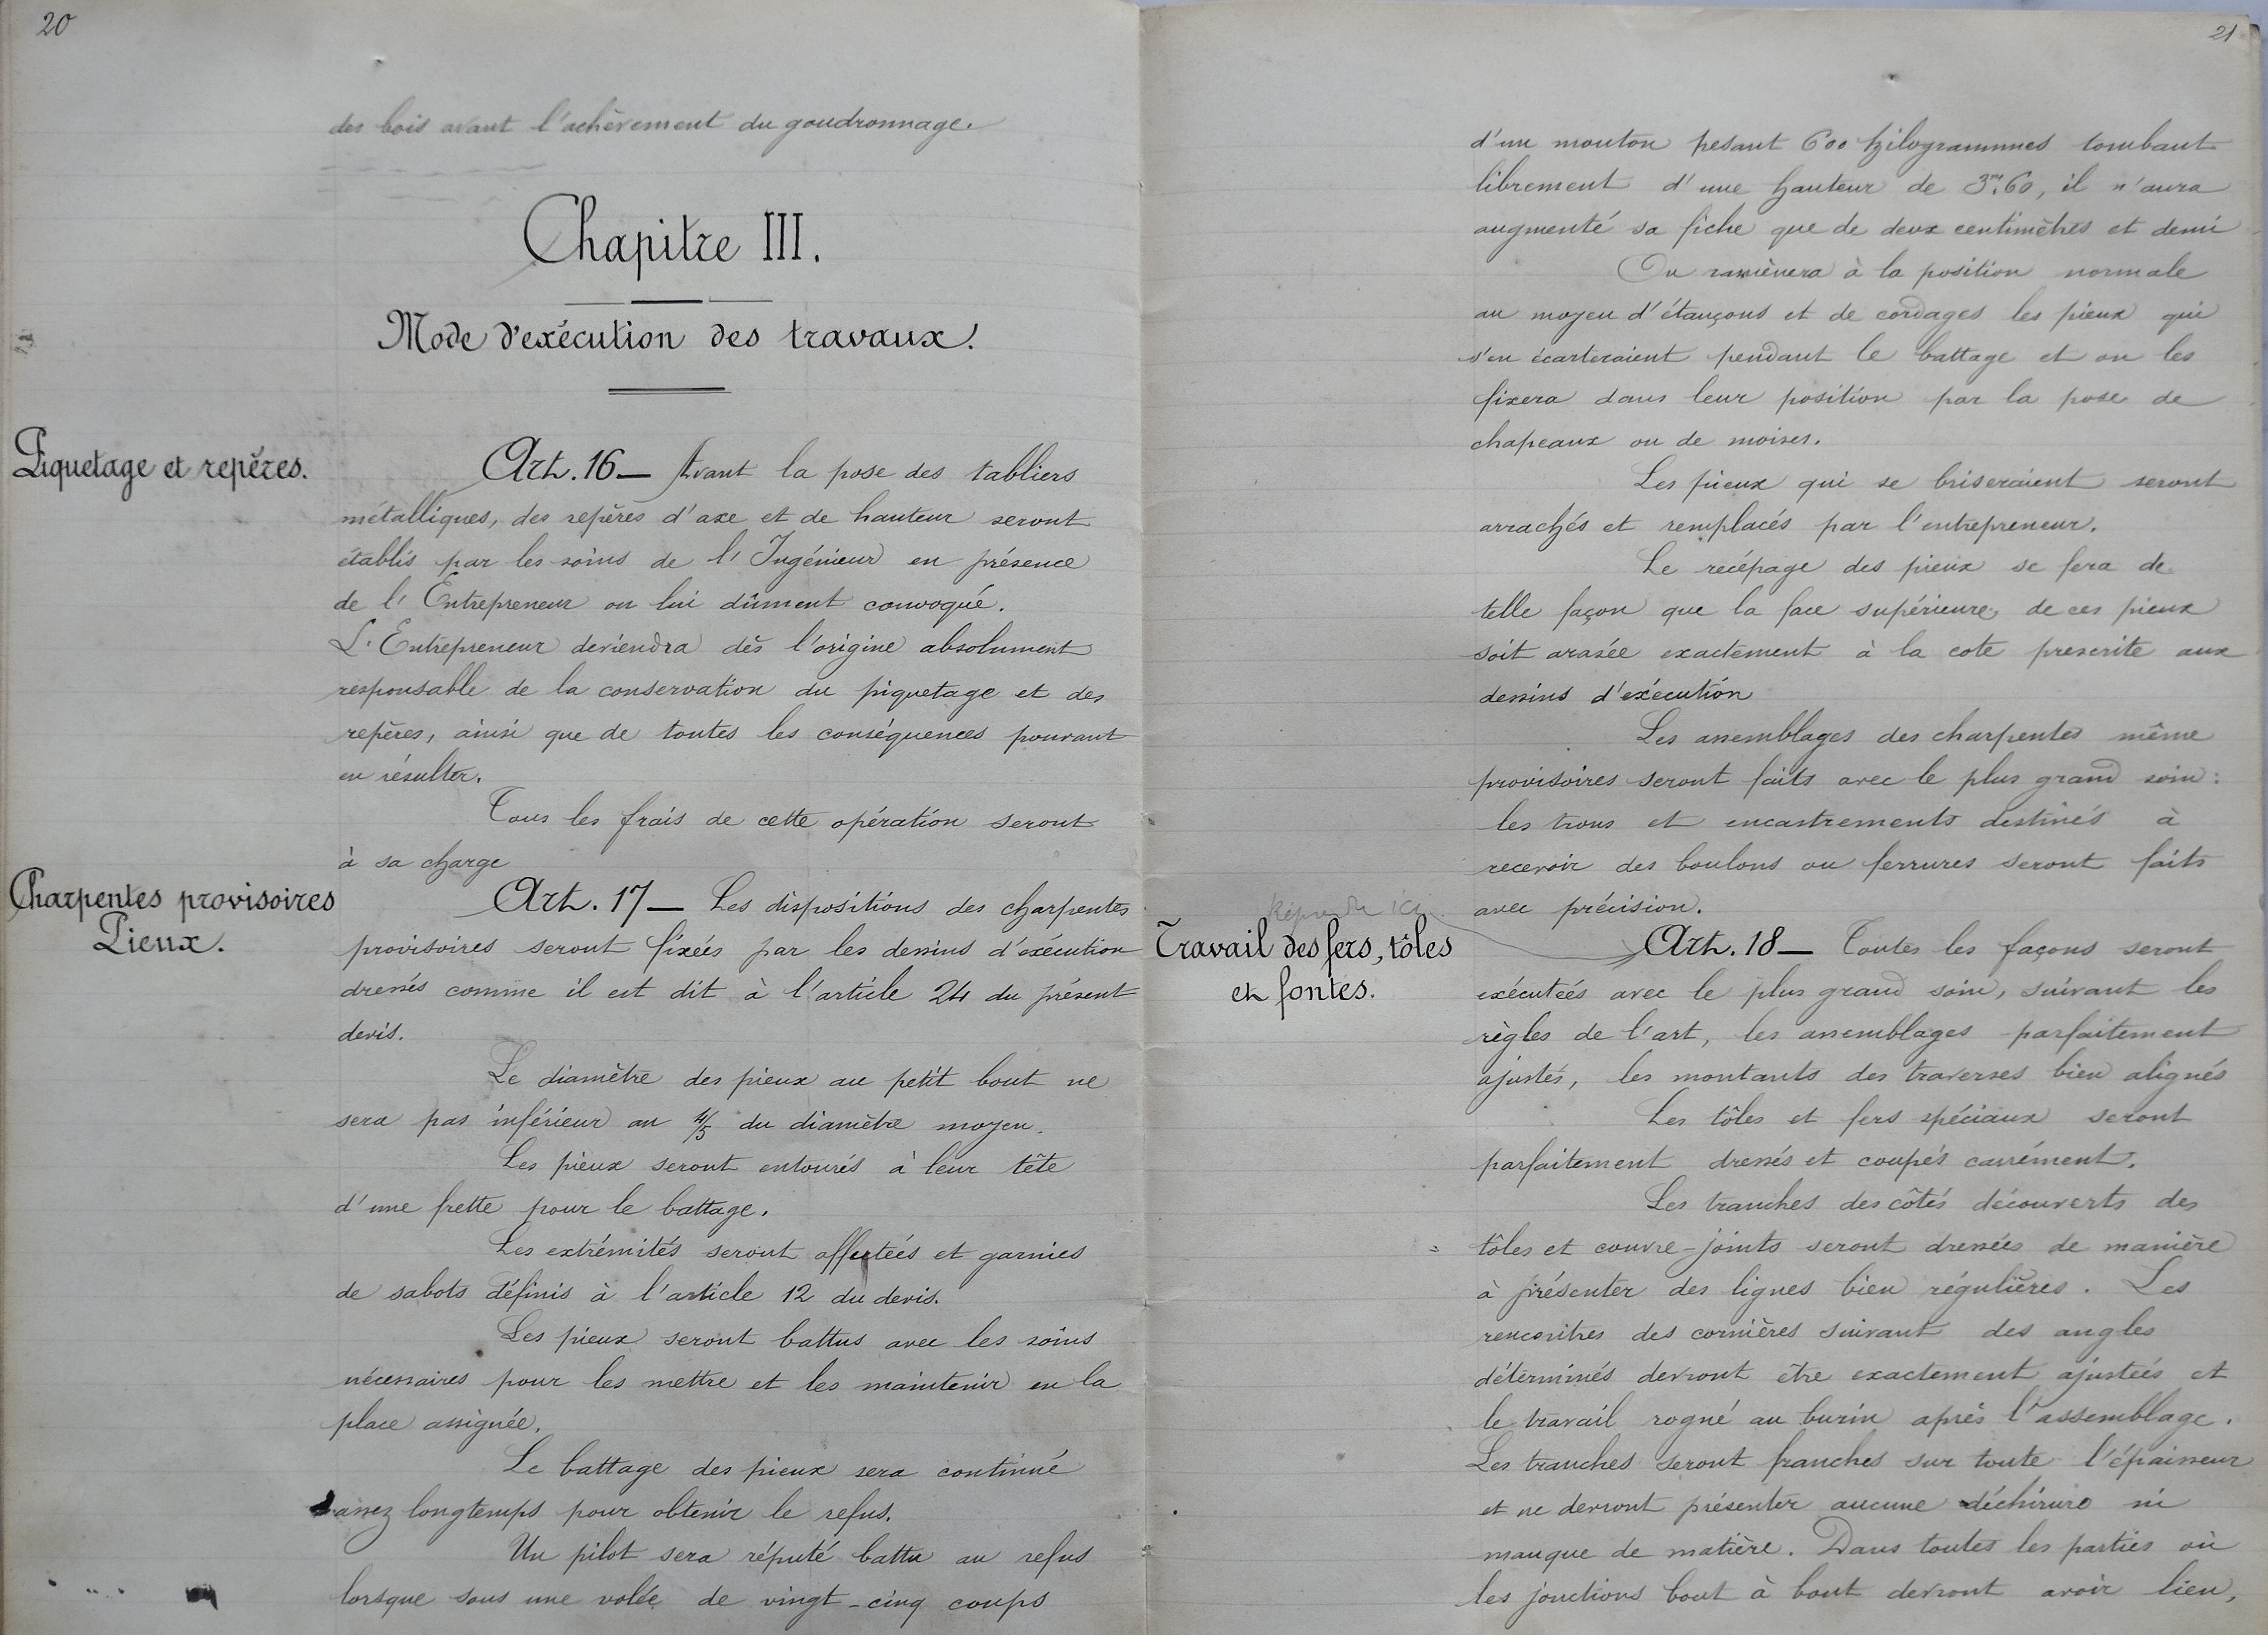 20
des bois avant l'achèvement du goudronnage.
Chapitre III.
Mode d'exécution des travaux.
Piquetage et repères.
Art. 16 — Avant la pose des tabliers
métalliques, des repères d'axe et de hauteur seront
établis par les soins de l'Ingénieur en présence
de l'Entrepreneur ou lui dûment convoqué.
L'Entrepreneur deviendra dès l'origine absolument
responsable de la conservation du piquetage et des
repères, ainsi que de toutes les conséquences pouvant
en résulter.
Tous les frais de cette opération seront
à sa charge
Charpentes provisoires
Pieux.
Art. 17 — Les dispositions des charpentes
provisoires seront fixées par les dessins d'exécution
dressés comme il est dit à l'article 24 du présent
devis.
Le diamètre des pieux au petit bout ne
sera pas inférieur au 4/5 du diamètre moyen.
Les pieux seront entourés à leur tête
d'une frette pour le battage.
Les extrémités seront affutées et garnies
de sabots définis à l'article 12 du devis.
Les pieux seront battus avec les soins
nécessaires pour les mettre et les maintenir en la
place assignée.
Le battage des pieux sera continué
assez longtemps pour obtenir le refus.
Un pilot sera réputé battu au refus
lorsque sous une volée de vingt-cinq coups
21
d'un mouton pesant 600 kilogrammes tombant
librement d'une hauteur de 3m,60, il n'aura
augmenté sa fiche que de deux centimètres et demi
On ramènera à la position normale
au moyen d'étançons et de cordages les pieux qui
s'en écarteraient pendant le battage et on les
fixera dans leur position par la pose de
chapeaux ou de moises.
Les pieux qui se briseraient seront
arrachés et remplacés par l'entrepreneur.
Le recépage des pieux se fera de
telle façon que la face supérieure de ces pieux
soit arasée exactement à la cote prescrite aux
dessins d'exécution
Les assemblages des charpentes même
provisoires seront faits avec le plus grand soin:
les trous et encastrements destinés à
recevoir des boulons ou ferrures seront faits
avec précision.
Reprendre ici
Travail des fers, tôles
et fontes.
Art. 18 — Toutes les façons seront
exécutées avec le plus grand soin, suivant les
règles de l'art, les assemblages parfaitement
ajustés, les montants des traverses bien alignés
Les tôles et fers spéciaux seront
parfaitement dressés et coupés carrément.
Les tranches des côtés découverts des
tôles et couvre-joints seront dressées de manière
à présenter des lignes bien régulières. Les
rencontres des cornières suivant des angles
déterminés devront être exactement ajustées et
le travail rogné au burin après l'assemblage.
Les tranches seront franches sur toute l'épaisseur
et ne devront présenter aucune déchirure ni
manque de matière. Dans toutes les parties où
les jonctions bout à bout devront avoir lieu,